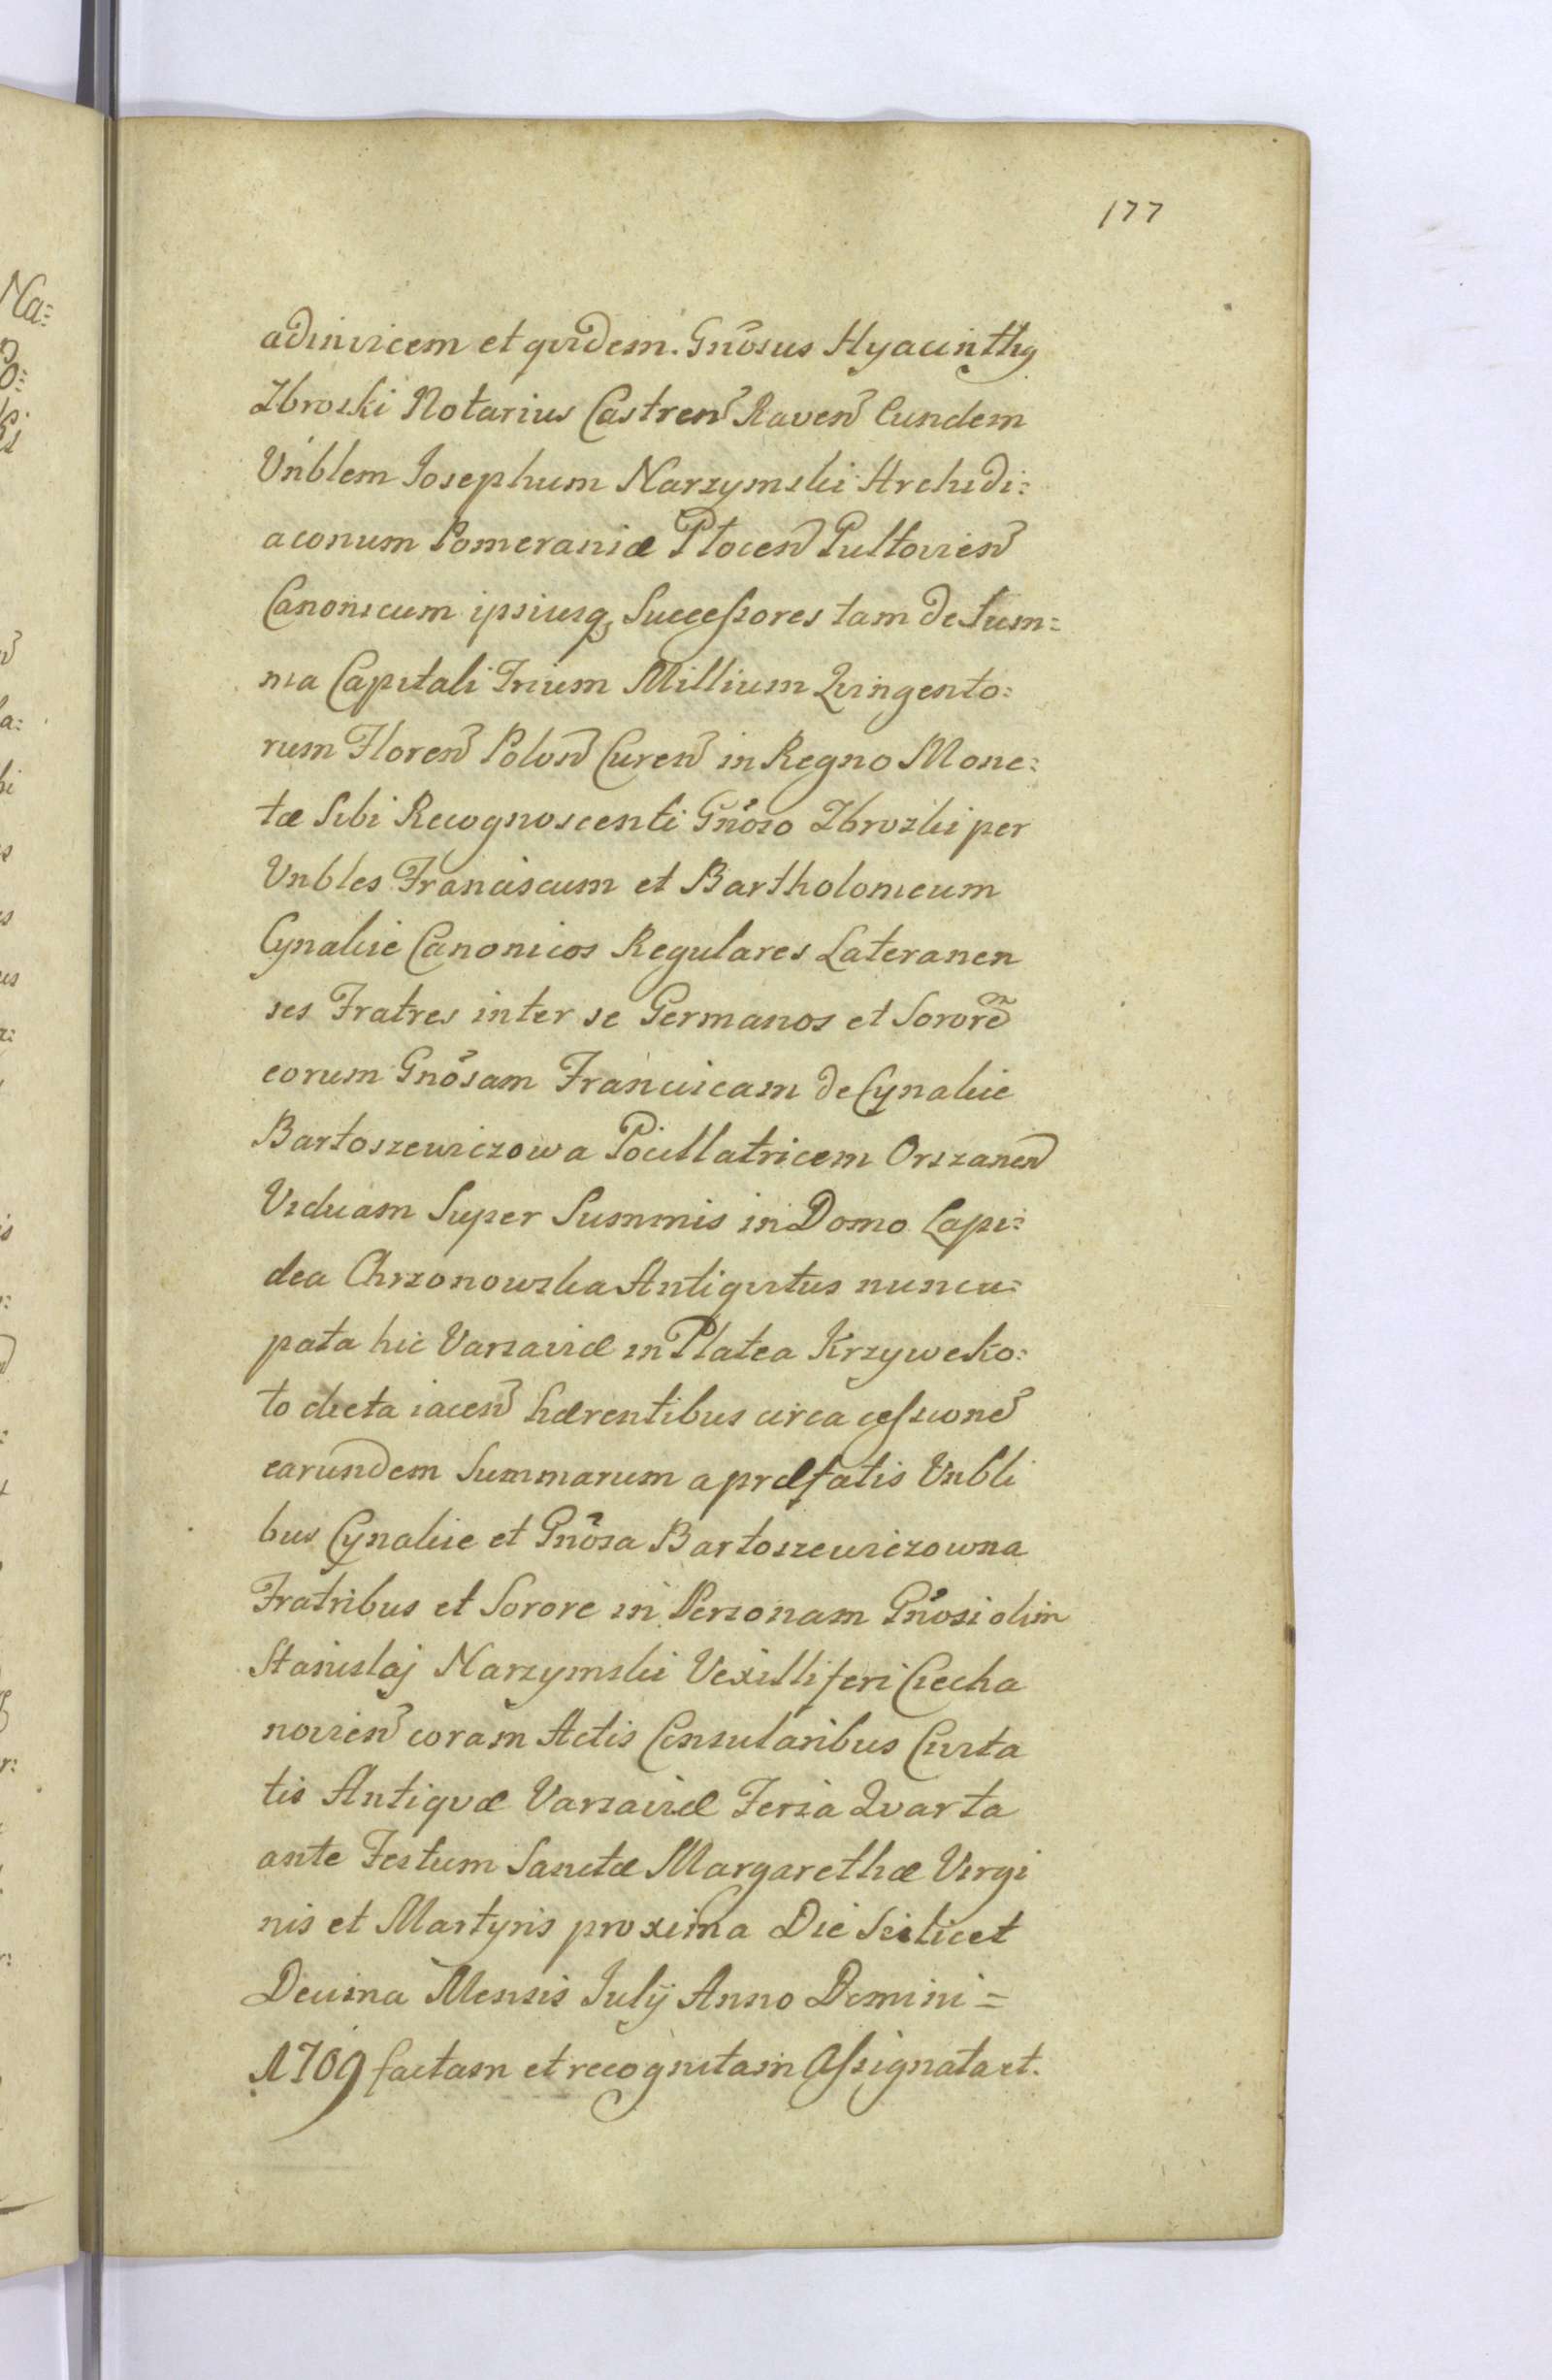 177
adinvicem et qvidem. Gnosus Hyacinthꝯ
Zbroski Notarius Castren Raven Eundem
Vnblem Iosephum Narzymski Archidi:
aconum Pomeraniæ Plocen Pultovien
Canonicum ipsiusq, Successores tam de Sum:
ma Capitali Trium Millium Qvingento:
rum Floren Polon Curen in Regno Mone:
tæ Sibi Recognoscenti Gnoso Zbroski per
Vnbles Franciscum et Bartholomeum
Cynakie Canonicos Regulares Lateranen
ses Fratres inter se Germanos et Sororẽ
eorum Gnosam Franciscam de Cynakie
Bartoszewiczowa Pocillatricem Orszanen
Viduam Super Summis in Domo Lapi:
dea Chrzonowska Antiqvitus nuncu:
pata hic Varsaviæ in Platea Krzyweko:
to dicta iacen hærentibus circa cessione
earundem Summarum a præfatis Vnbli
bus Cynakie et Gnosa Bartoszewiczowna
Fratribus et Sorore in Personam Gnosi olim
Stanislaj Narzymski Vexilliferi Ciecha
novien coram Actis Consularibus Civita
tis Antiqvæ Varsaviæ Feria Qvarta
ante Festum Sanctæ Margarethæ Virgi
nis et Martyris proxima Die Scilicet
Decima Mensis Julij Anno Domini =
1709 factam et recognitam Assignata et.